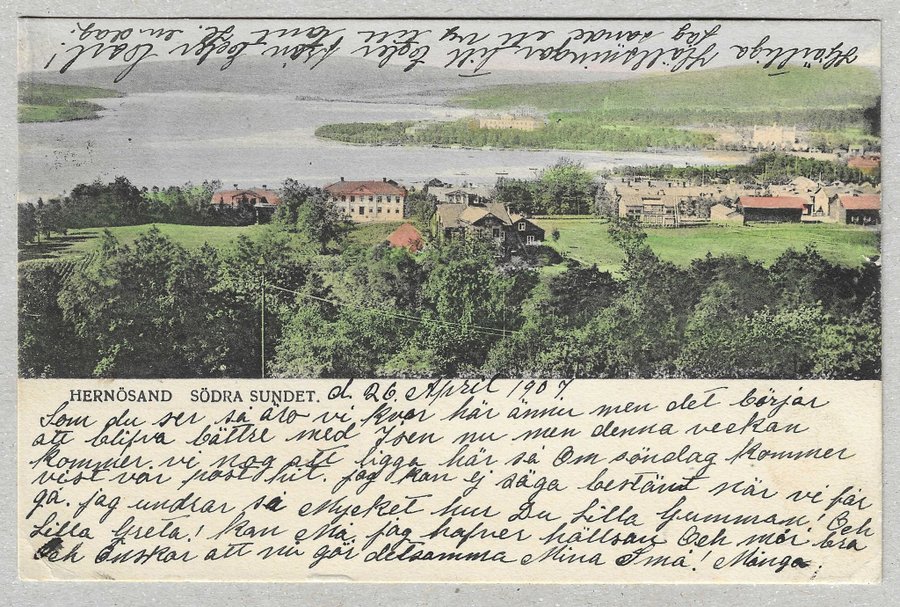 HERNÖSAND SÖDRA SUNDET. d. 26 April 1907
Som du ser så äro vi kvar här ännu men det börjar
att blifva bättre med Isen nu men denna veckan
kommer vi nog att ligga här så Om söndag kommer
vist vår post hit. Jag kan ej säga bestänt när vi får
gå. Jag undrar så Mycket hur Du Lilla Gumman! Och
Lilla Greta! kan Må, jag hafver hällsan Och mår bra
Och Önskar att nu gör detsamma Mina Små! Många.
Hjärtliga Hälsningar till Eder från Eder Carl!
Jag sände ett ny till Emt en dag.